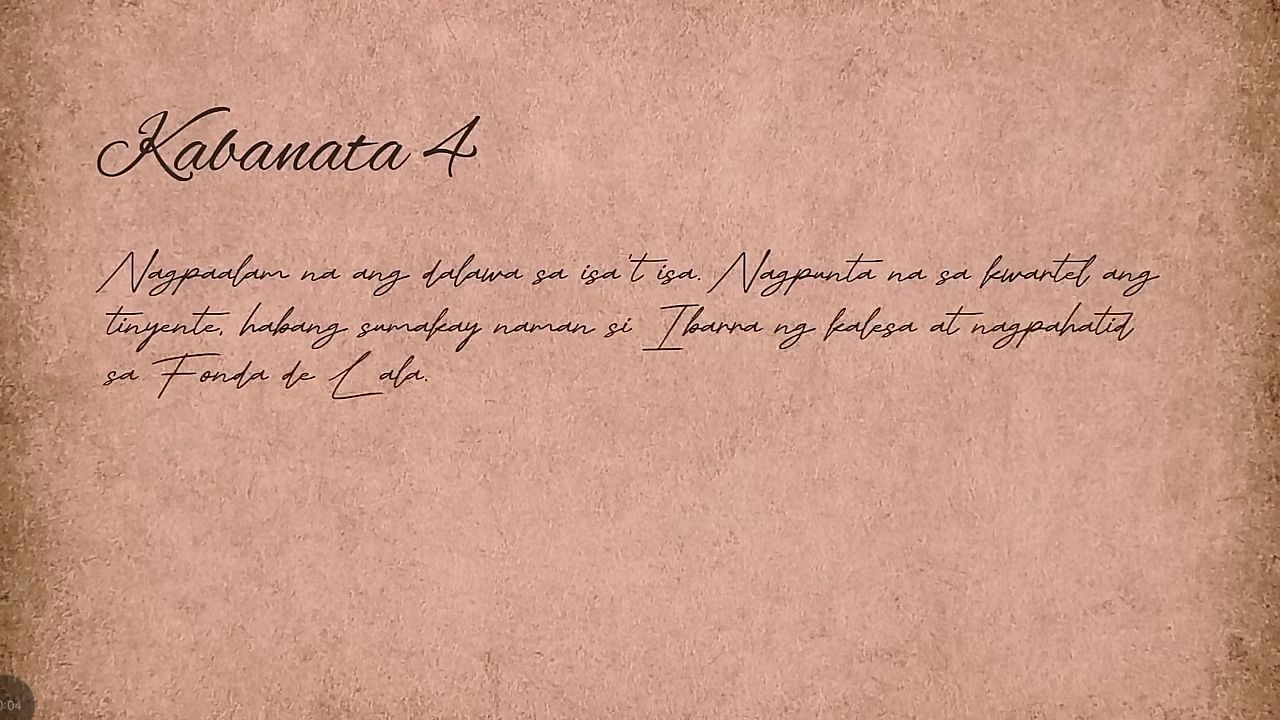 Kabanata 4
Nagpaalam na ang dalawa sa isa't isa. Nagpunta na sa kwartel ang
tinyente, habang sumakay naman si Ibarra ng kalesa at nagpahatid
sa Fonda de Lala.
0:04